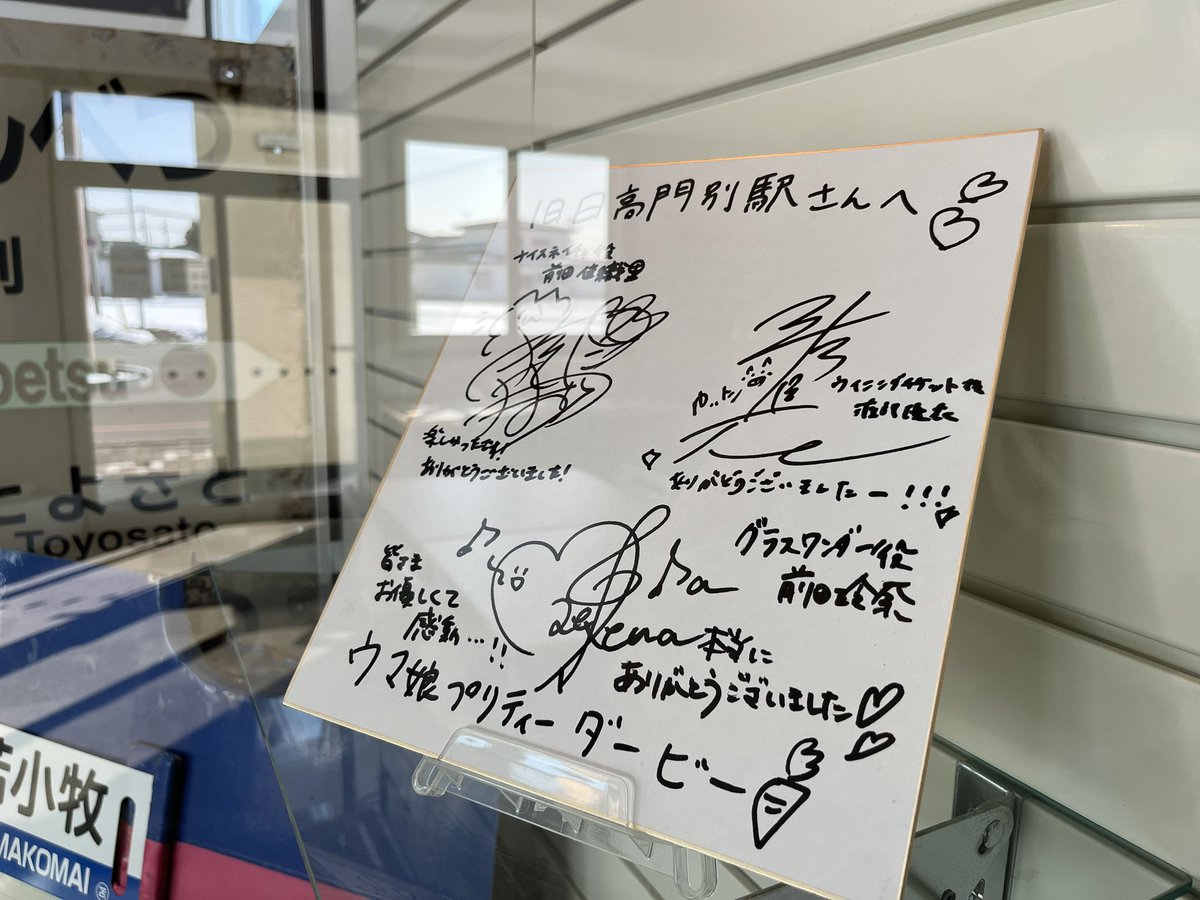 旧日高門別駅さんへ
ナイスネイチャ役
前田佳織里
楽しかったです!
ありがとうございました!
ウイニングチケット役
渡部優衣
ありがとうございましたー!!!
グラスワンダー役
前田玲奈
皆さま
お優しくて
感動…!!
Rena
本当に
ありがとうございました
ウマ娘プリティーダービー
べつ
betsu
とよさと
Toyosato
苫小牧
MAKOMAI